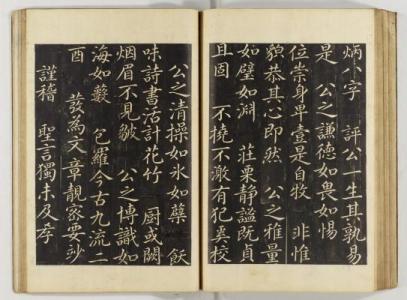 炳八字　評公一生其孰易
是　公之謙德如畏如惕
位崇身卑壹是自牧　非惟
貌恭其心即然　公之雅量
如璧如淵　莊栗静謐既貞
且固　不撓不澂有犯奚校
公之清操如氷如蘗　飫
味詩書活計花竹　厨或闕
烟眉不見皺　公之博識如
海如藪　包羅今古九流二
酉　發為文章靚密要眇
謹稽　聖言獨未及孝